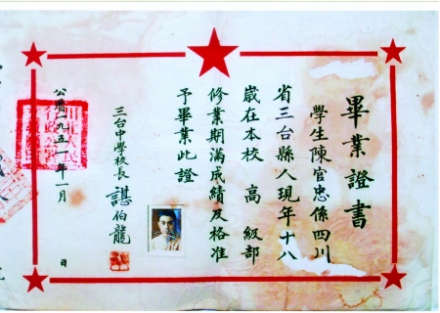 畢業證書
學生陳官忠係四川
省三台縣人現年十八
歲在本校 高級部
修業期滿成績及格准
予畢業此證
三台中學校長 諶伯龍
公曆一九五一年一月 日